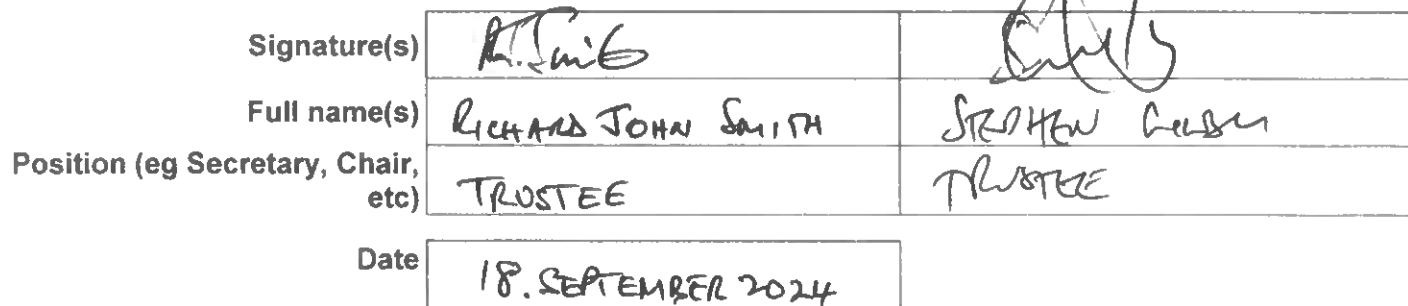 Signature(s) R.J. Smith
Full name(s) RICHARD JOHN SMITH STEPHEN
Position (eg Secretary, Chair, etc) TRUSTEE TRUSTEE
Date 18. SEPTEMBER 2024